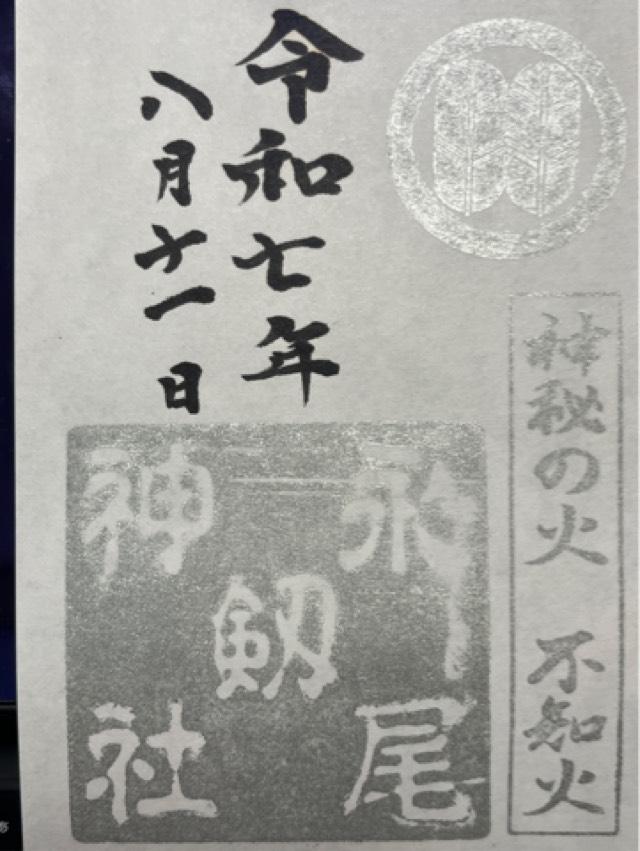 神秘の火　不知火
令和七年
八月十一日
永尾
剱
神社